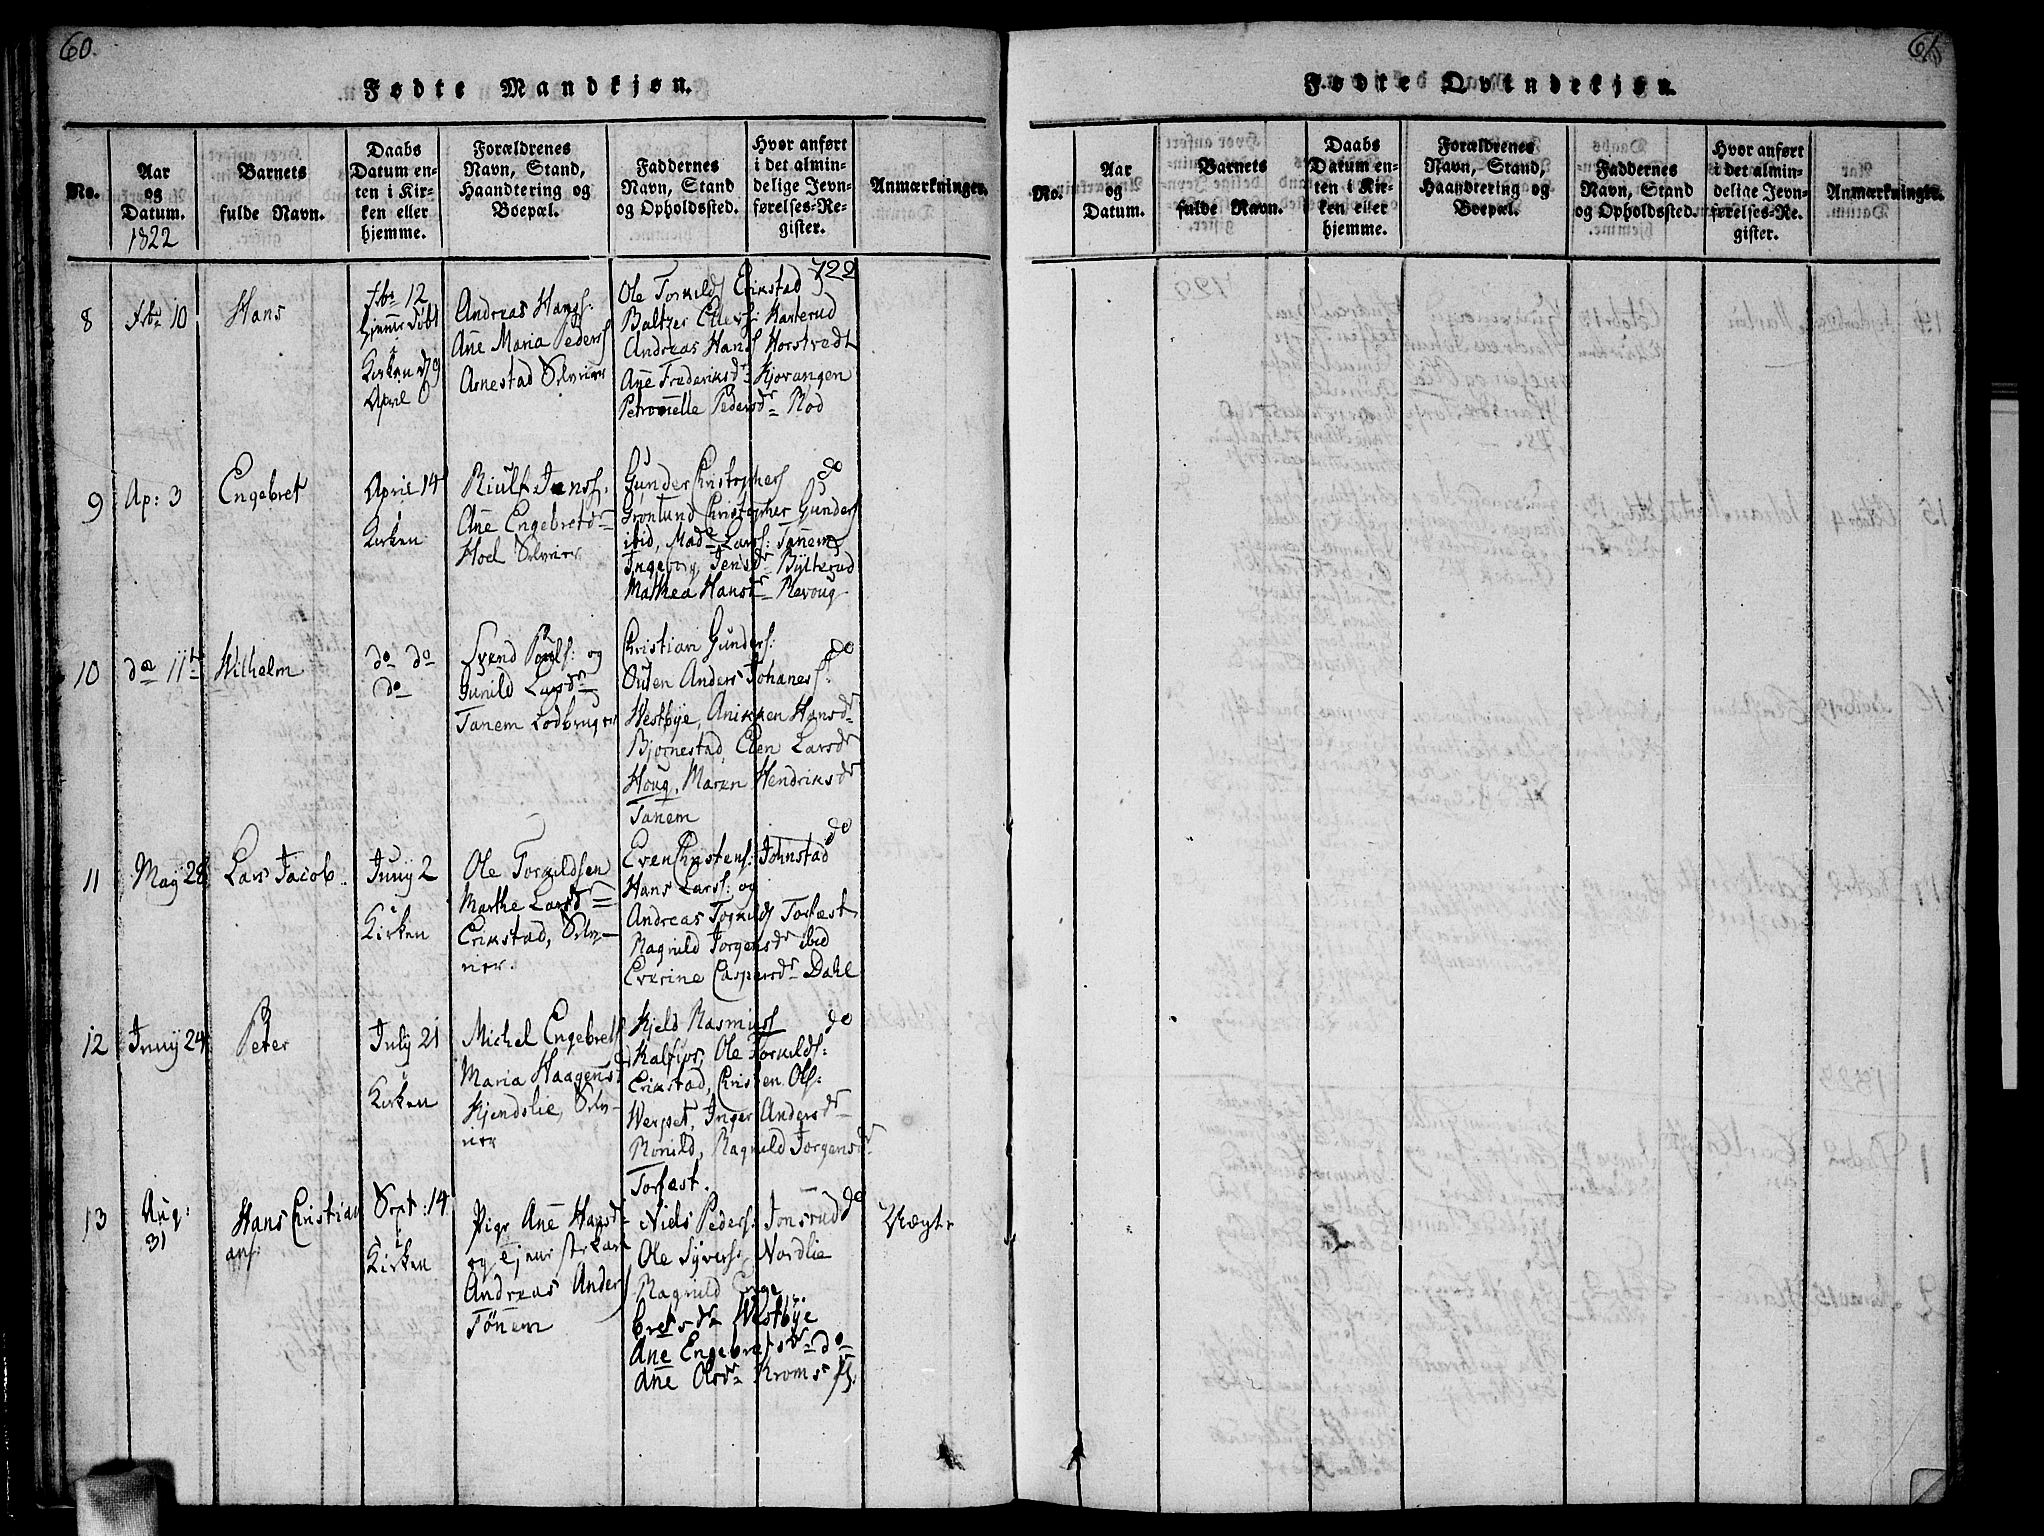 60.
Fødte Mandkjøn.
No.
Aar
og
Datum.
1822
Barnets
fulde Navn.
Daabs
Datum en-
ten i Kir-
ken eller
hjemme.
Forældrenes
Navn, Stand,
Haandtering og
Boepæl.
Faddernes
Navn, Stand
og Opholdssted.
Hvor anført
i det almin-
delige Jevn-
førelses-Re-
gister.
Anmærkninger.
8
Feb: 10
Hans
Feb: 12
hjemme døbt
i
Kirken d 9
April
Andreas Hans:
Ane Maria Peders
Asnestad
Ole Torkilds Erikstad
Baltzer Ellevs: Harterud
Andreas Hans Horstvedt
Ane Frederiksdr Kjovangen
Petronelle Pedersdr Rod
722
9
Ap: 3
Engebret
April 14
i
Kirken
Riulf Jenss.
Ane Engebretsdr
Hoel Selveier
Gunder Christophers
Gronlund Christopher Gunders
ibid, Mads Larss: Tanem
Ingeborg Jensdr Bylterud
Mathea Hansdr Revoug
do
10
do 11te
Wilhelm
do do
do
Svend Pouls: og
Gunild Larsdr
Tanem Lodbruger
Christian Gunders:
Ousen Anders Johanes:
Westbye, Anikken Hansdr
Bjornestad, Elen Larsdr
Houg, Maren Hendriksdr
Tanem
do
11
May 28
Lars Jacob
Juny 2
i
Kirken
Ole Torkildsen
Marthe Larsdr
Erikstad, Selv-
eier.
Even Christens: Johnstad
Hans Larss: og
Andreas Torkilds Torfæst
Ragnild Jorgensdr ibid
Everine Caspersdr Dahl
do
12
Juny 24
Peter
July 21
i
Kirken
Michel Engebrets
Maria Haagensd
Kjendslie, Selv-
eier
Kjeld Rasmuss
Kalfjos, Ole Torkilds:
Erikstad, Christen Ols:
Werpet, Inger Andersdr
Ronild, Ragnild Jorgensdr
Torfast.
do
13
Aug:
31
Hans Christian
Sept: 14
i
Kirken
Pige Ane Hansd
og
Andreas Anders
Tønem
Niels Peders: Jonsrud
Ole Syvers: Nordlie
Ragnild Enge
bretsdr Westbye
Ane Engebretsdr do
Ane Olsdr
do
Uægte
61
Fødte Qvindekjøn.
No.
Aar
og
Datum.
Barnets
fulde Navn.
Daabs
Datum en-
ten i Kir-
ken eller
hjemme.
Forældrenes
Navn, Stand,
Haandtering og
Boepæl.
Faddernes
Navn, Stand
og Opholdssted.
Hvor anført
i det almin-
delige Jevn-
førelses-Re-
gister.
Anmærkninger.